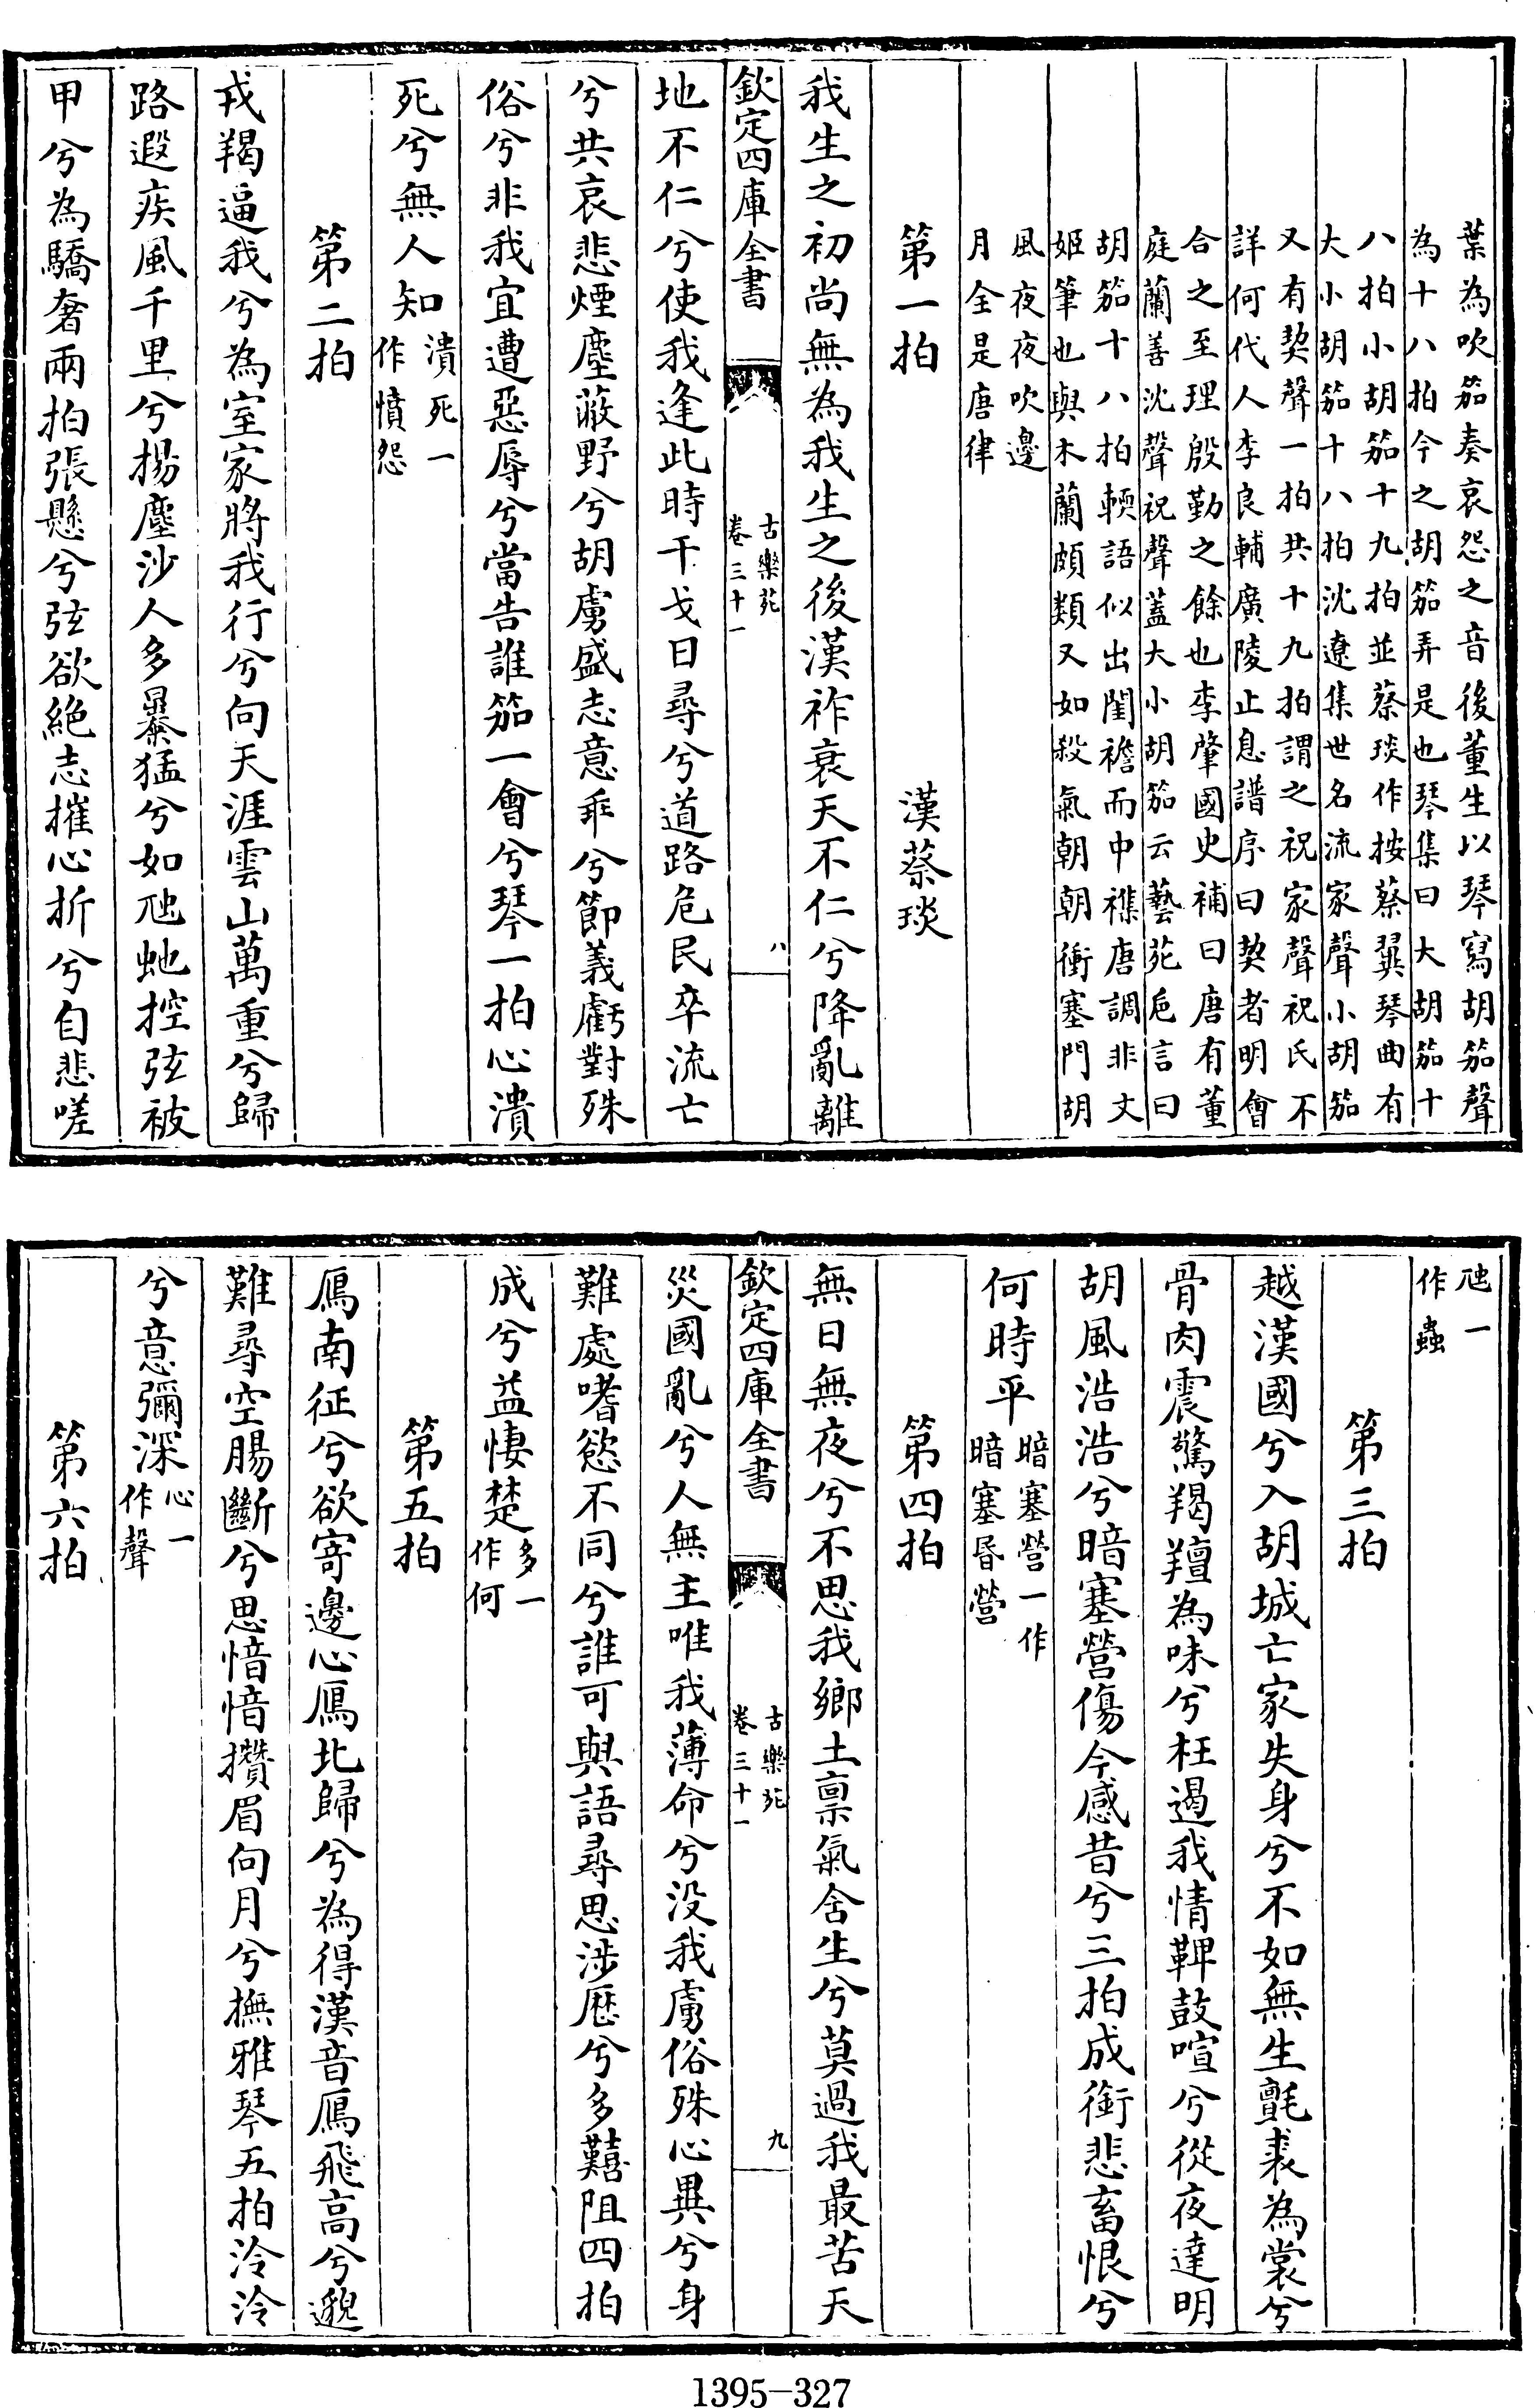 葉為吹笳奏哀怨之音後董生以琴寫胡笳聲
為十八拍今之胡笳弄是也琴集曰大胡笳十
八拍小胡笳十九拍並蔡琰作按蔡翼琴曲有
大小胡笳十八拍沈遼集世名流家聲小胡笳
又有契聲一拍共十九拍謂之祝家聲祝氏不
詳何代人李良輔廣陵止息譜序曰契者明會
合之至理殷勤之餘也李肇國史補曰唐有董
庭蘭善沈聲祝聲蓋大小胡笳云藝苑巵言曰
胡笳十八拍輭語似出閨襜而中襍唐調非文
姬筆也與木蘭頗類又如殺氣朝朝衝塞門胡
風夜夜吹邊
月全是唐律
第一拍　漢蔡琰
我生之初尚無為我生之後漢祚衰天不仁兮降亂離
欽定四庫全書　古樂苑　卷三十一　八
地不仁兮使我逢此時干戈日尋兮道路危民卒流亡
兮共哀悲煙塵蔽野兮胡虜盛志意乖兮節義虧對殊
俗兮非我宜遭惡辱兮當告誰笳一會兮琴一拍心潰
死兮無人知潰死一作憤怨
第二拍
戎羯逼我兮為室家將我行兮向天涯雲山萬重兮歸
路遐疾風千里兮揚塵沙人多暴猛兮如虺虵控弦被
甲兮為驕奢兩拍張懸兮弦欲絶志摧心折兮自悲嗟
虺一作蟲
第三拍
越漢國兮入胡城亡家失身兮不如無生氈裘為裳兮
骨肉震驚羯羶為味兮枉遏我情鞞鼓喧兮從夜達明
胡風浩浩兮暗塞營傷今感昔兮三拍成銜悲畜恨兮
何時平暗塞營一作暗塞昬營
第四拍
無日無夜兮不思我鄉土禀氣含生兮莫過我最苦天
欽定四庫全書　古樂苑　卷三十一　九
災國亂兮人無主唯我薄命兮没我虜俗殊心異兮身
難處嗜慾不同兮誰可與語尋思涉歷兮多囏阻四拍
成兮益悽楚多一作何
第五拍
鴈南征兮欲寄邊心鴈北歸兮為得漢音鴈飛高兮邈
難尋空腸斷兮思愔愔攢眉向月兮撫雅琴五拍泠泠
兮意彌深心一作聲
第六拍
1395-327